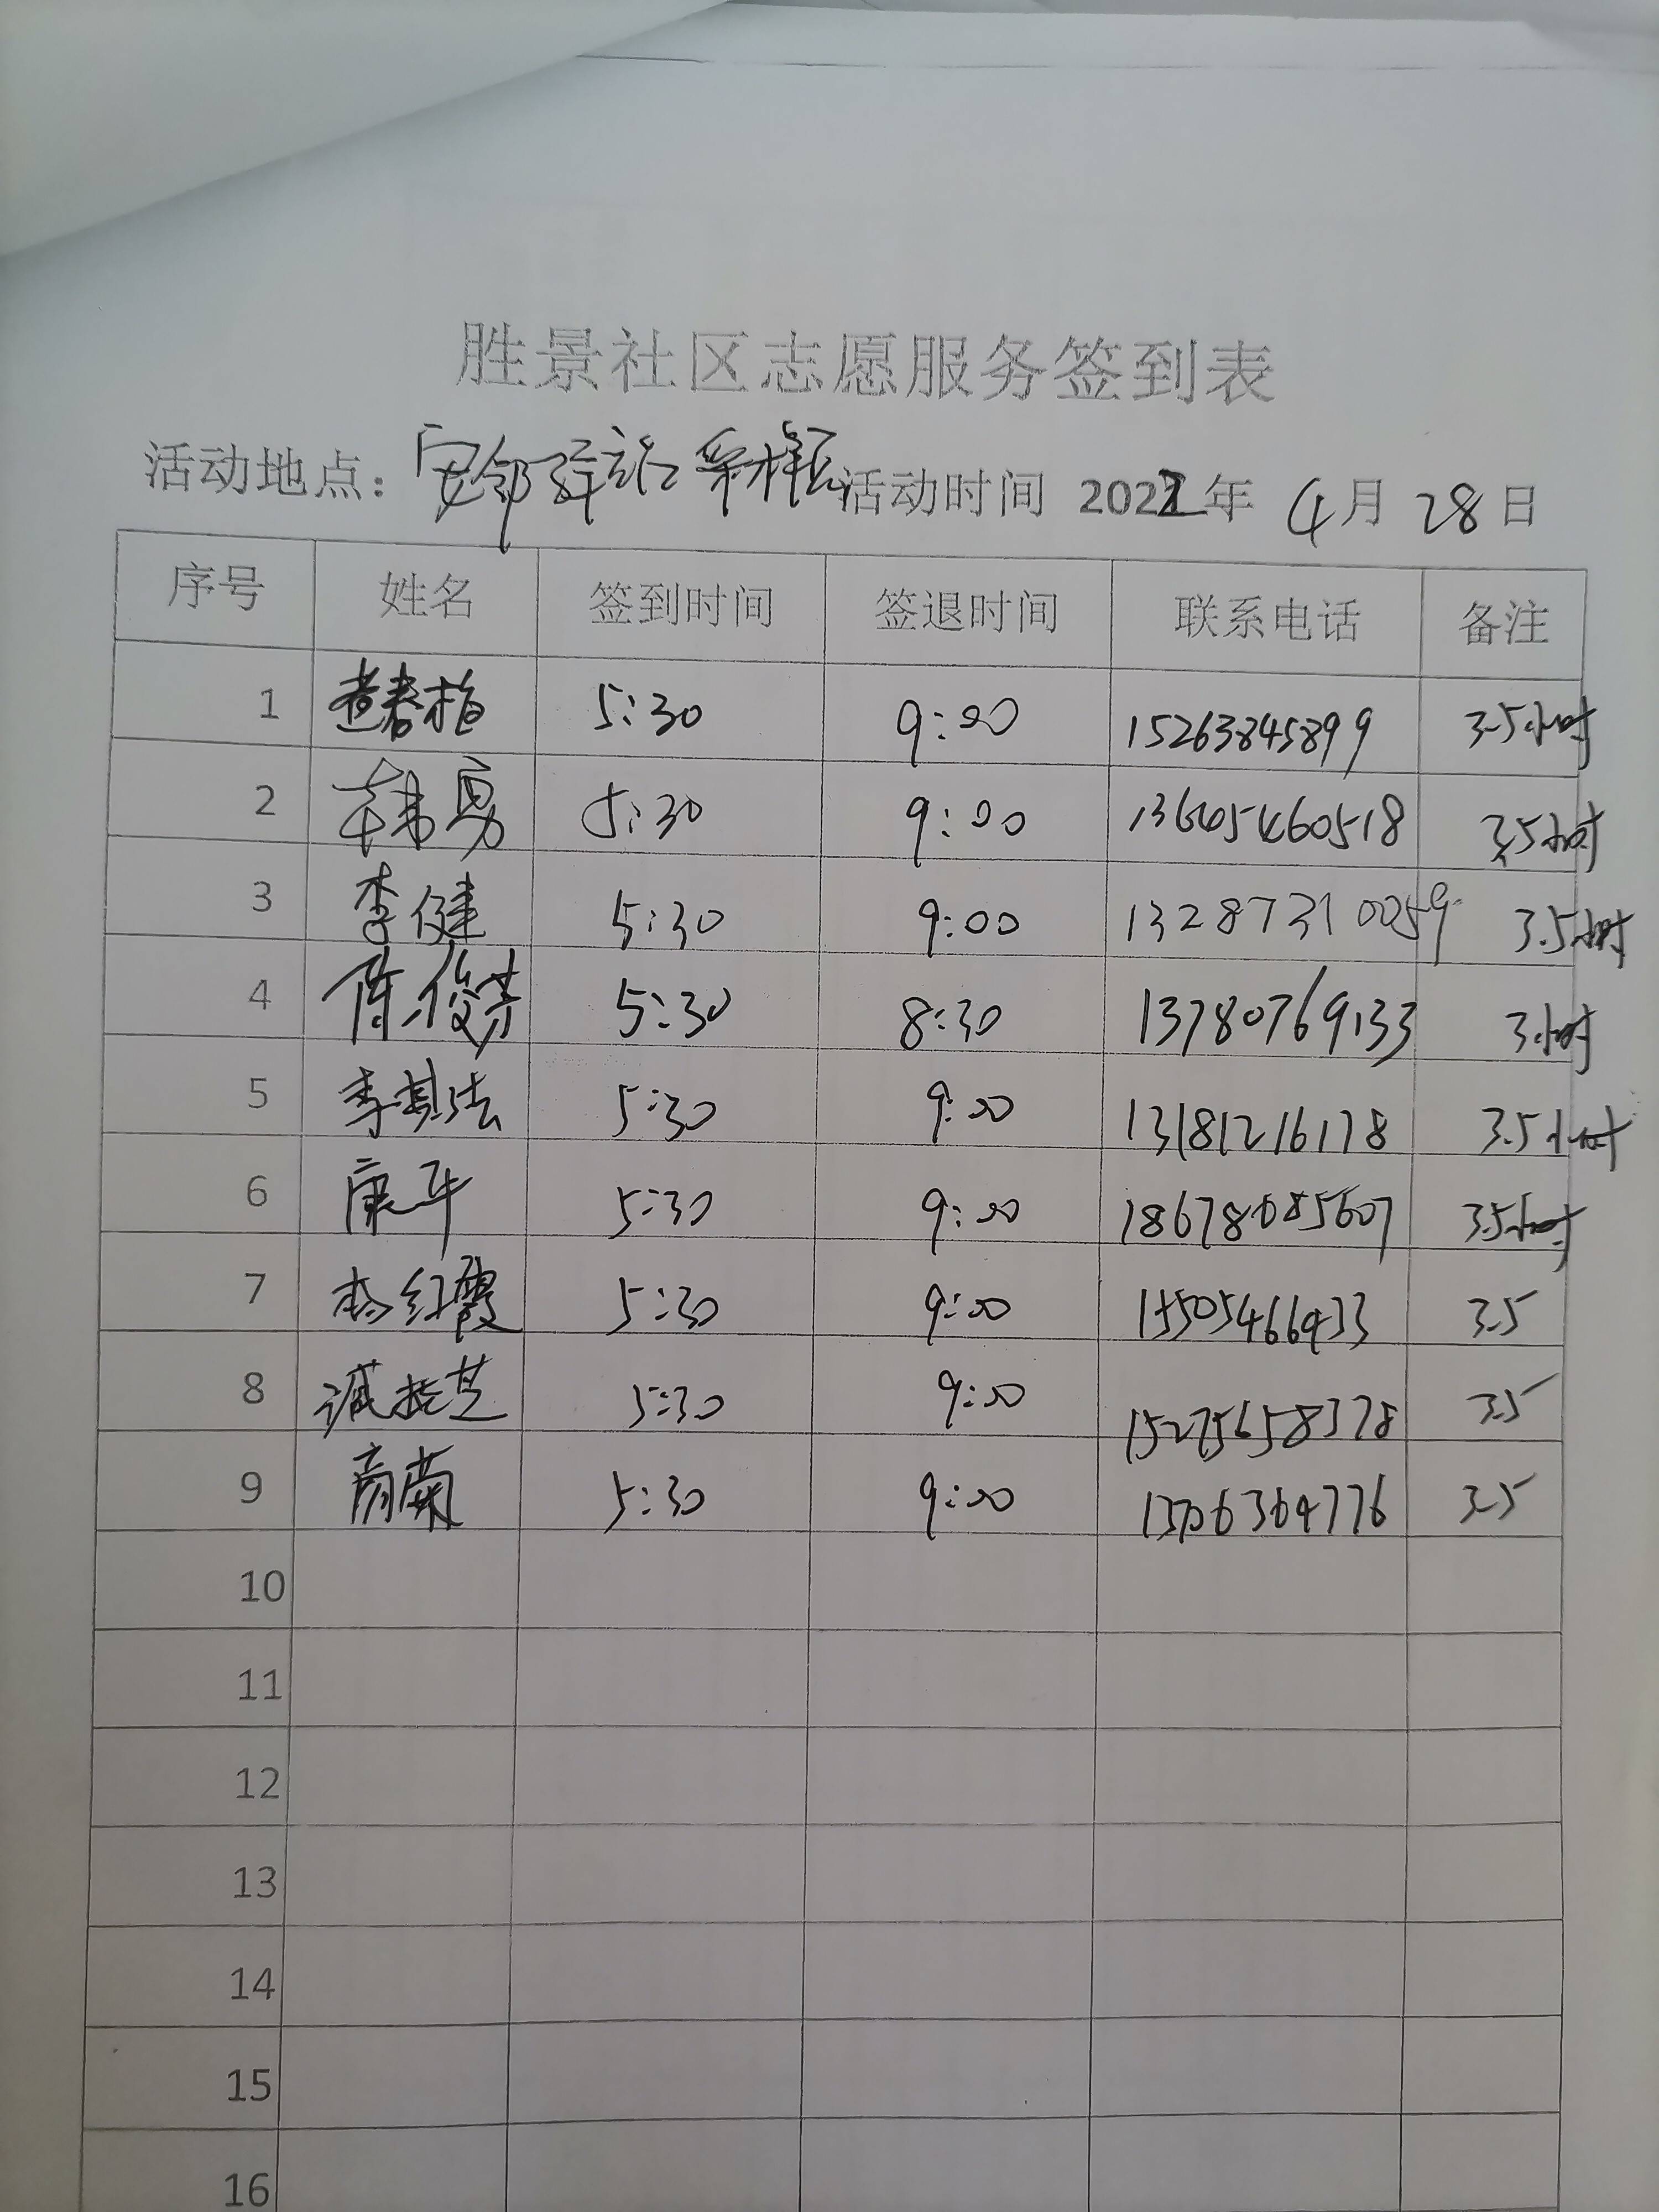 胜景社区志愿服务签到表
活动地点： 采样区 活动时间 2022年 4月 28日
序号 姓名 签到时间 签退时间 联系电话 备注
1 5:30 9:00 15263845899 3.5小时
2 韩勇 5:30 9:00 13645460518 3.5小时
3 李健 5:30 9:00 13287310059 3.5小时
4 陈俊芳 5:30 8:30 13780769133 3小时
5 5:30 9:00 13181216178 3.5小时
6 康平 5:30 9:00 18678085607 3.5小时
7 杨红霞 5:30 9:00 15505466933 3.5
8 5:30 9:00 15275658378 3.5
9 5:30 9:00 3.5
10
11
12
13
14
15
16